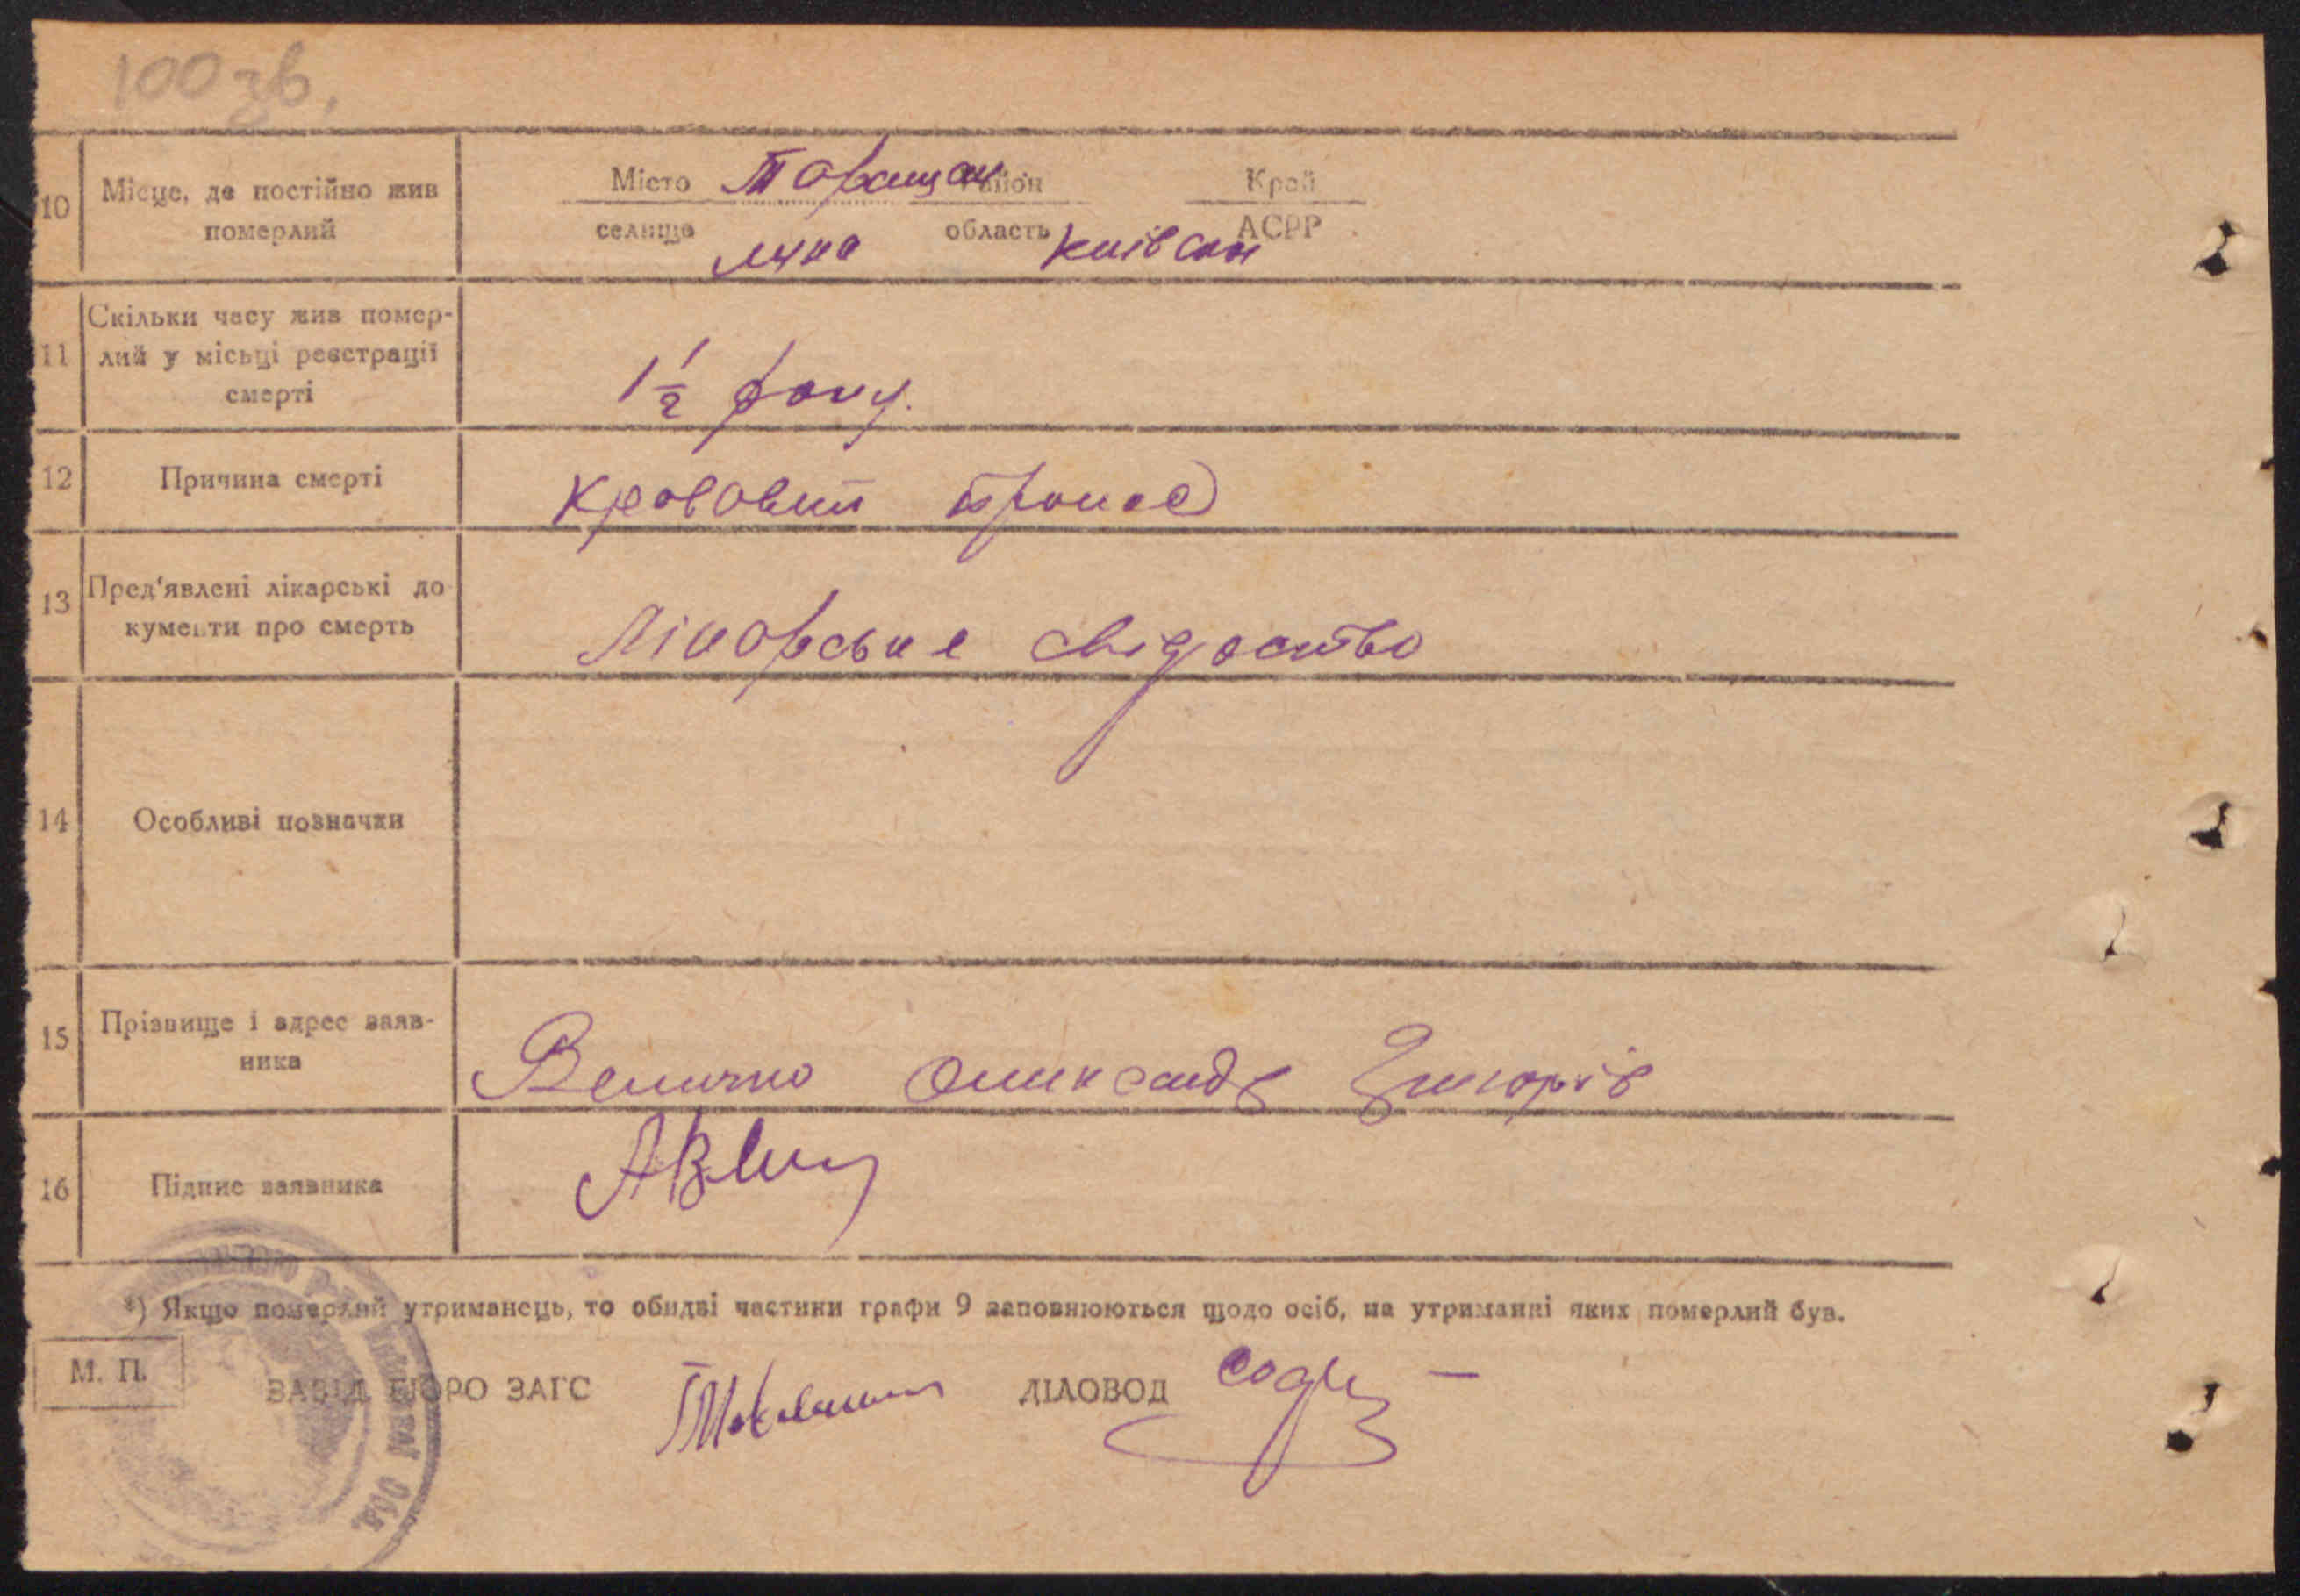 100 зв.
10 Місце, де постійно жив
померлий
Місто Таращан район Край
селище Лука область Київськ АСРР
11 Скільки часу жив помер-
лий у місьці реєстрації
смерті
1 1/2 року.
12 Причина смерті Крововий понос
13 Пред'явлені лікарські до
кументи про смерть
Лікарське свідоство
14 Особливі позначки
15 Прізвище і адрес заяв-
ника
Величко Олександр Григорів
16 Підпис заявника
*) Якщо померлий утриманець, то обидві частини графи 9 заповнюються щодо осіб, на утриманні яких померлий був.
М. П.
ЗАВІД. БЮРО ЗАГС ДІЛОВОД